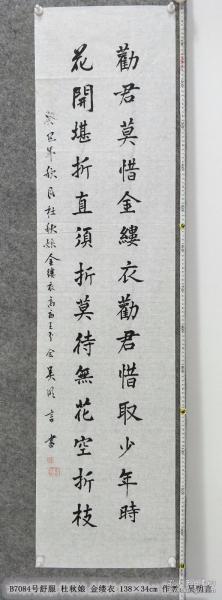 勸君莫惜金縷衣勸君惜取少年時
花開堪折直須折莫待無花空折枝
癸巳年秋月杜秋娘金縷衣
書
B7084号舒服 杜秋娘 金缕衣 138×34cm 作者：吴明鑫